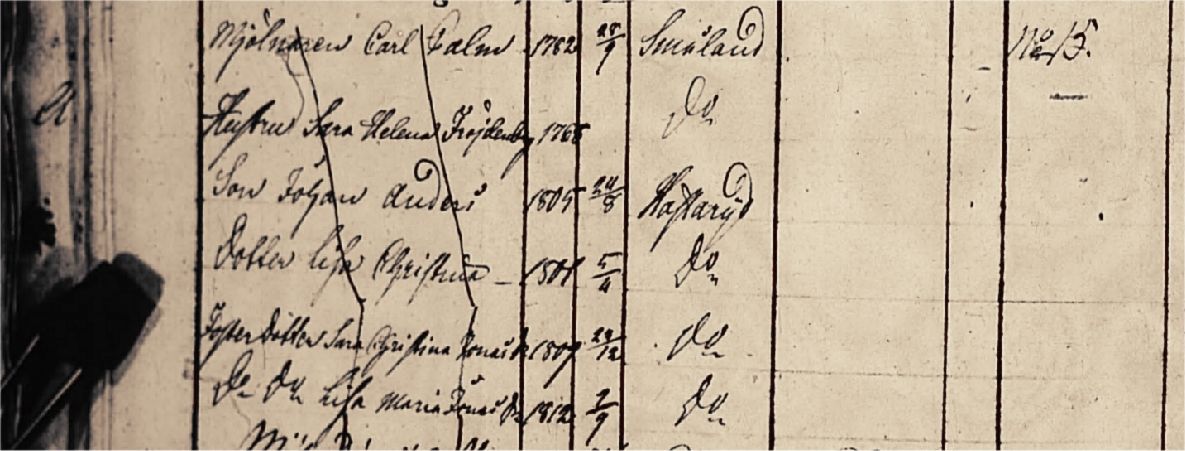 Mjölnaren Carl Palm 1782 28/9 Småland No 15.
A. Hustru Sara Helena 1768 Do
Son Johan Anders 1805 24/8 Haftaryd
Dotter Lisa Christina 1801 5/4 Do
Foster Dotter Sara Christina Jonas Dr 1809 24/12 Do
Do Do Lisa Maria Jonas Dr 1812 2/9 Do